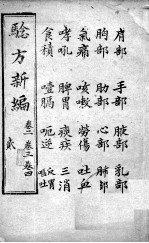 肩部 手部 腋部 乳部
胸部 肋部 心部 肺部
氣痛 咳嗽 勞傷 吐血
哮吼 脾胃 痰疾 三消
食積 噎膈 呃逆
騐方新編 卷二 卷三 卷四
貳